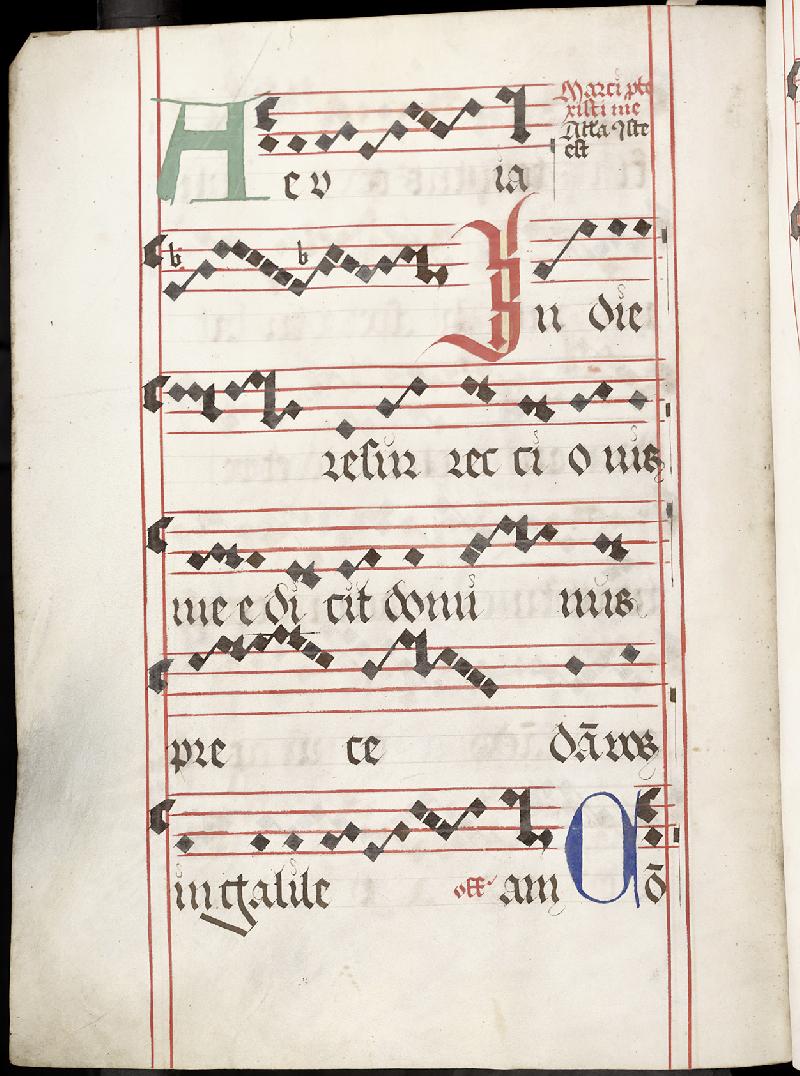 A ev ia
Marci pte
xisti me
Alla Iste
est
In die
resur rec ci o nis
me e di cit domi nus
pre ce dā vos
in galile off am O ō